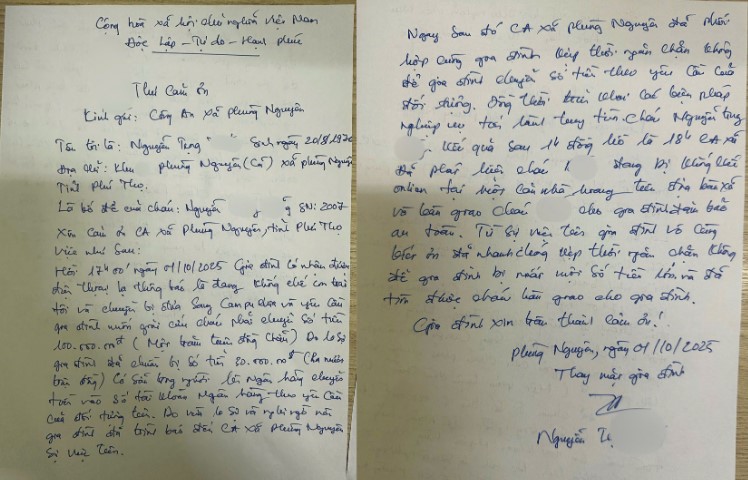 Cộng hòa xã hội chủ nghĩa Việt Nam
Độc Lập - Tự do - Hạnh phúc
Thư Cảm ơn
Kính gửi: Công An xã Phùng Nguyên
Tên tôi là: Nguyễn Tùng Sinh ngày 20/8/1976
Địa chỉ: Khu Phùng Nguyên (Cũ) xã Phùng Nguyên
Tỉnh Phú Thọ.
Là bố đẻ của cháu: Nguyễn SN: 2007
Xin Cảm ơn CA xã Phùng Nguyên, tỉnh Phú Thọ
Việc như sau:
Hồi 17h00' ngày 01/10/2025 Gia đình có nhận được
điện thoại lạ thông báo là đang khống chế con trai
tôi và chuẩn bị đưa sang Campuchia và yêu cầu
gia đình muốn giải cứu cháu phải chuyển số tiền
100.000.000đ (Một trăm triệu đồng chẵn) Do lo sợ
gia đình đã chuẩn bị số tiền 20.000.000đ (Hai mươi
triệu đồng) Có sẵn trong người lên Ngân hàng chuyển
tiền vào số tài khoản Ngân hàng theo yêu cầu
của đối tượng trên. Do vừa lo sợ và nghi ngờ nên
gia đình đã trình báo đến CA xã Phùng Nguyên
Sự việc trên.
Ngay sau đó CA xã Phùng Nguyên đã phối
hợp cùng gia đình kịp thời ngăn chặn không
để gia đình chuyển số tiền theo yêu cầu của
đối tượng. Đồng thời triển khai các biện pháp
nghiệp vụ tới làm truy tìm cháu Nguyễn Tùng
Kết quả sau 1h đồng hồ là 18h CA xã
đã phát hiện cháu đang bị khống chế
online tại một căn nhà hoang trên địa bàn xã
và bàn giao cháu cho gia đình đảm bảo
an toàn. Từ sự việc trên gia đình vô cùng
biết ơn đã nhanh chóng kịp thời ngăn chặn không
để gia đình bị mất một số tiền lớn và đã
tìm được cháu bàn giao cho gia đình.
Gia đình xin trân thành cảm ơn!
Phùng Nguyên, ngày 01/10/2025
Thay mặt gia đình
Nguyễn T